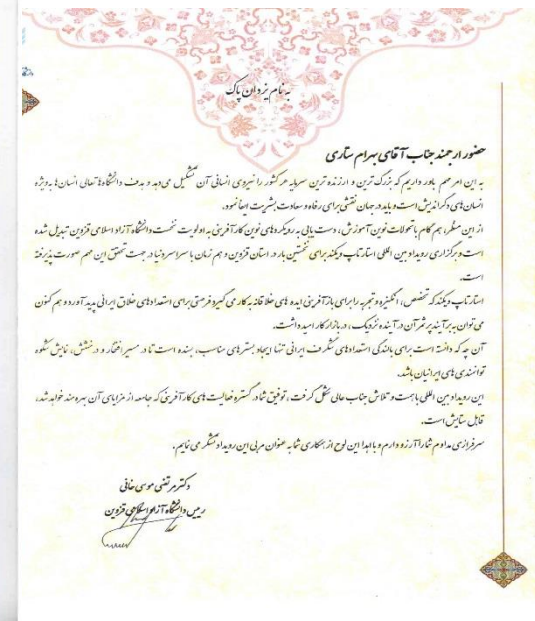 به نام یزدان پاک
حضور ارجمند جناب آقای بهرام ستاری
به این امر مهم باور داریم که بزرگ ترین و ارزنده ترین سرمایه هر کشور را نیروی انسانی آن تشکیل می دهد و هدف دانشگاه‌ها تعالی انسان‌ها به ویژه
انسان های دگراندیش است و باید در جهان نقشی برای رفاه و سعادت بشریت ایفا نمود.
از این منظر، هم گام با تحولات نوین آموزش، دست یابی به رویکردهای نوین کارآفرینی به اولویت نخست دانشگاه آزاد اسلامی قزوین تبدیل شده
است و برگزاری رویداد بین المللی استارتاپ ویکند برای نخستین بار در استان قزوین و هم زمان با سراسر دنیا در جهت تحقق این مهم صورت پذیرفته
است.
استارتاپ ویکند که تخصص، انگیزه و تجربه را برای بازآفرینی ایده های خلاقانه به کار می گیرد فرصتی برای استعدادهای خلاق ایرانی پدید آورد و هم کنون
می توان به برآیند پر ثمر آن در آینده نزدیک، در بازار کار امید داشت.
آن چه که دانسته است برای بالندگی استعدادهای شگرف ایرانی تنها ایجاد بسترهای مناسب، بسنده است تا در مسیر افتخار و درخشش، نمایش شکوه
توانمندی های ایرانیان باشد.
این رویداد بین المللی با همت و تلاش جناب عالی شکل گرفت، توفیق شما در گستره فعالیت های کارآفرینی که جامعه از مزایای آن بهره مند خواهد شد،
قابل ستایش است.
سرفرازی مداوم شما را آرزو دارم و با اهدا این لوح از همکاری شما به عنوان مربی این رویداد تشکر می نمایم.
دکتر مرتضی موسی خانی
رییس دانشگاه آزاد اسلامی قزوین